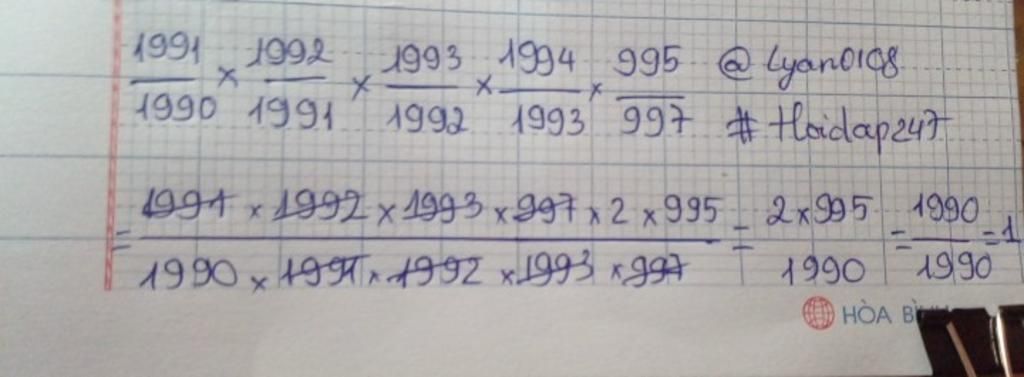 1991/1990 × 1992/1991 × 1993/1992 × 1994/1993 × 995/997 @Lyan0108
#Hoidap247
= 1991 × 1992 × 1993 × 997 × 2 × 995 / 1990 × 1991 × 1992 × 1993 × 997 = 2×995/1990 = 1990/1990 = 1
HÒA